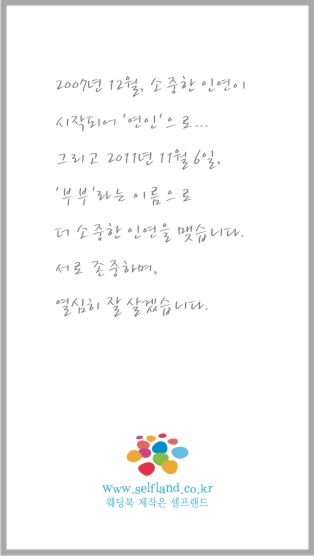 2007년 12월, 소중한 인연이
시작되어 '연인'으로...
그리고 2011년 11월 6일,
'부부'라는 이름으로
더 소중한 인연을 맺습니다.
서로 존중하며,
열심히 잘 살겠습니다.
www.selfland.co.kr
웨딩북 제작은 셀프랜드